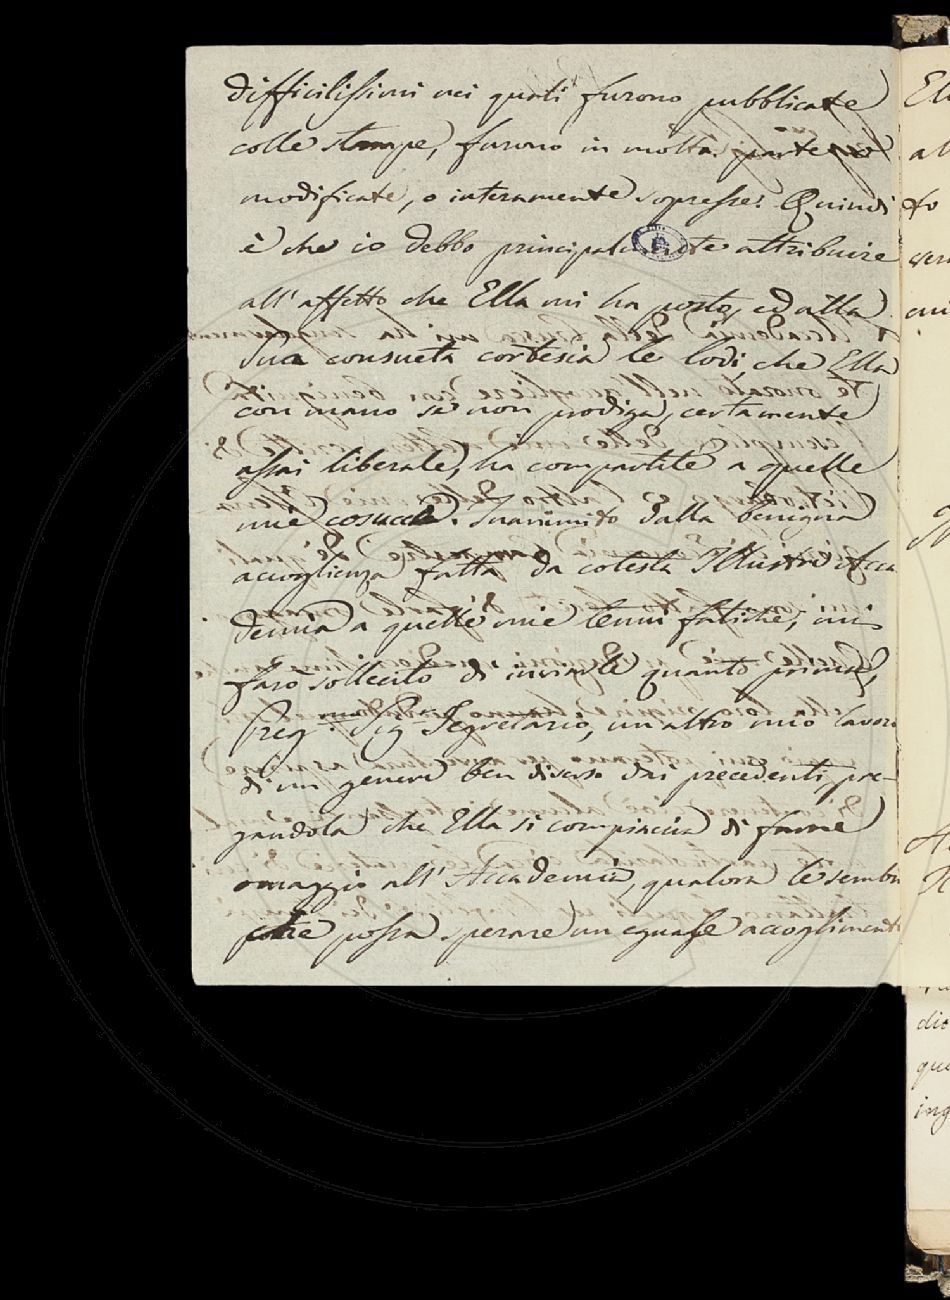 difficilissimi nei quali furono pubblicate
colle stampe, furono in molta parte o
modificate, o interamente sopresse. Quindi
è che io debbo principalmente attribuire
all'affetto che Ella mi ha posto, ed alla
Sua consueta cortesia le lodi, che Ella
con mano se non prodiga, certamente
assai liberale, ha compartite a quelle
mie cosucce. Inanimito dalla benigna
accoglienza fatta da cotesta Illustre Acca
demia a quelle mie tenui fatiche, mi
farò sollecito di inviarle quanto prima,
Preg. Sig. Segretario, un altro mio lavoro
di un genere ben diverso dai precedenti, pre-
gandola che Ella si compiaccia di farne
omaggio all'Accademia, qualora le sembri
potere possa sperare un eguale accoglimento